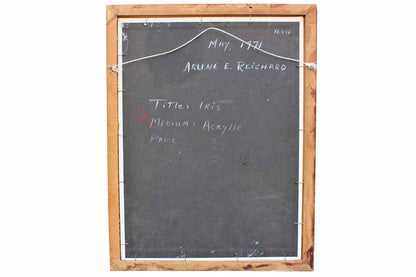 May, 1971
ARLENE E. REICHARD
Title: IRIS
MEDIUM: ACRYLIC
PRICE